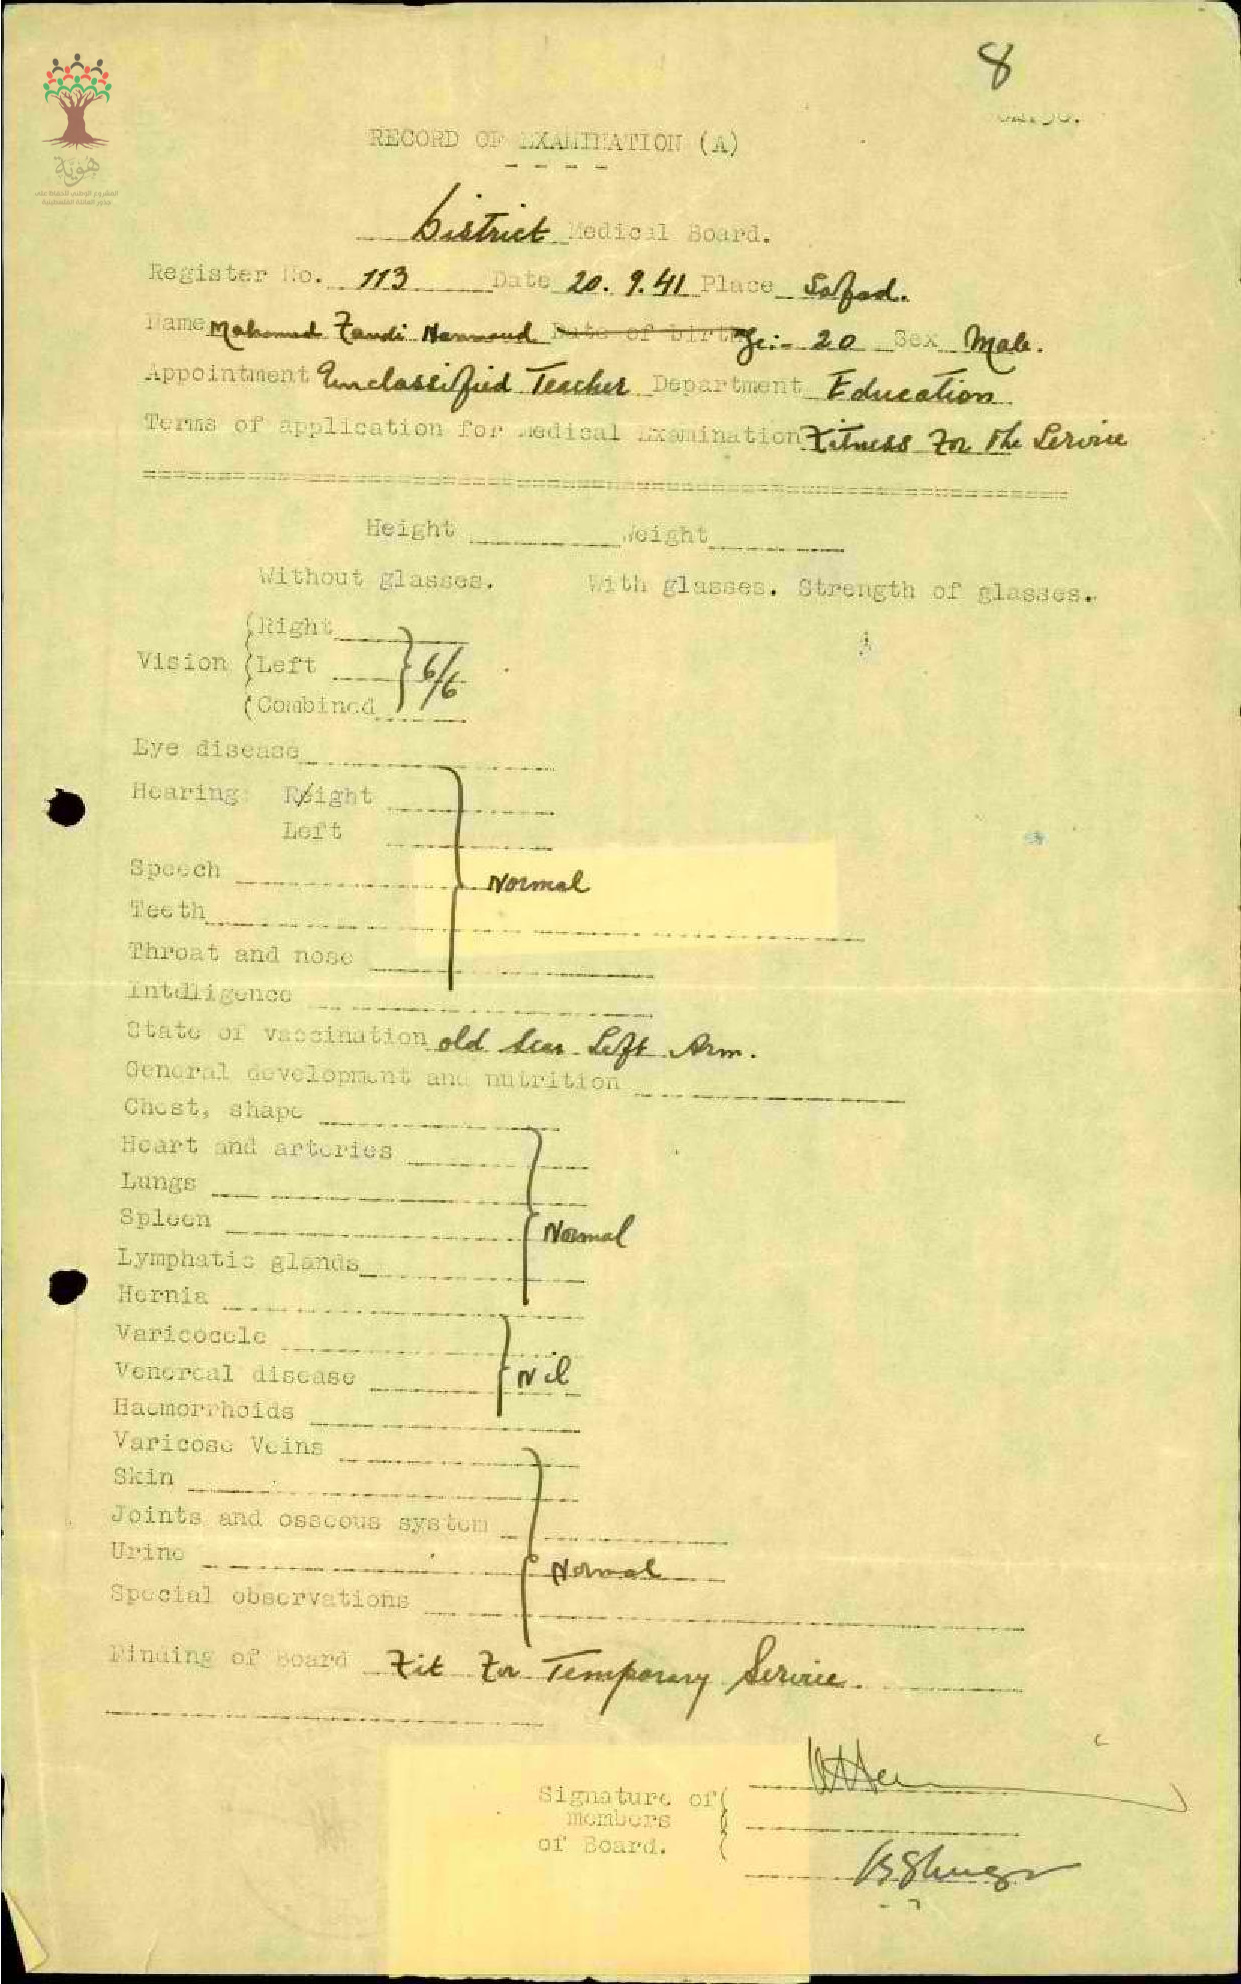 8
RECORD OF EXAMINATION (A)
هوية
المشروع الوطني للحفاظ على
جذور العائلة الفلسطينية
District Medical Board.
Register No. 113 Date 20. 9. 41 Place Safad.
Name Mahmud Fandi Hammoud Date of birth Age:- 20 Sex Male.
Appointment Unclassified Teacher Department Education
Terms of application for Medical Examination Fitness For The Service
Height Weight
Without glasses. With glasses. Strength of glasses.
(Right
Vision (Left } 6/6
(Combined
Eye disease
Hearing: Right
Left
Speech Normal
Teeth
Throat and nose
Intelligence
State of vaccination old scar Left Arm.
General development and nutrition
Chest, shape
Heart and arteries
Lungs
Spleen Normal
Lymphatic glands
Hernia
Varicocele
Venereal disease Nil
Haemorrhoids
Varicose Veins
Skin
Joints and osseous system
Urine Normal
Special observations
Finding of Board Fit For Temporary Service.
Signature of (
members (
of Board. (